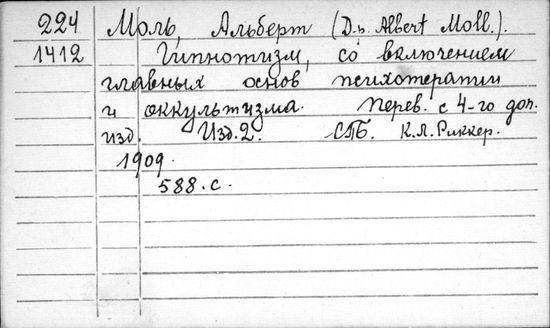 224 Моль, Альберт (D-r. Albert Moll.).
1412 Гипнотизм, со включением
главных основ психотерапии
и оккультизма. Перев. с 4-го доп.
изд. Изд. 2. СПБ. К.Л. Риккер.
1909.
588. с.